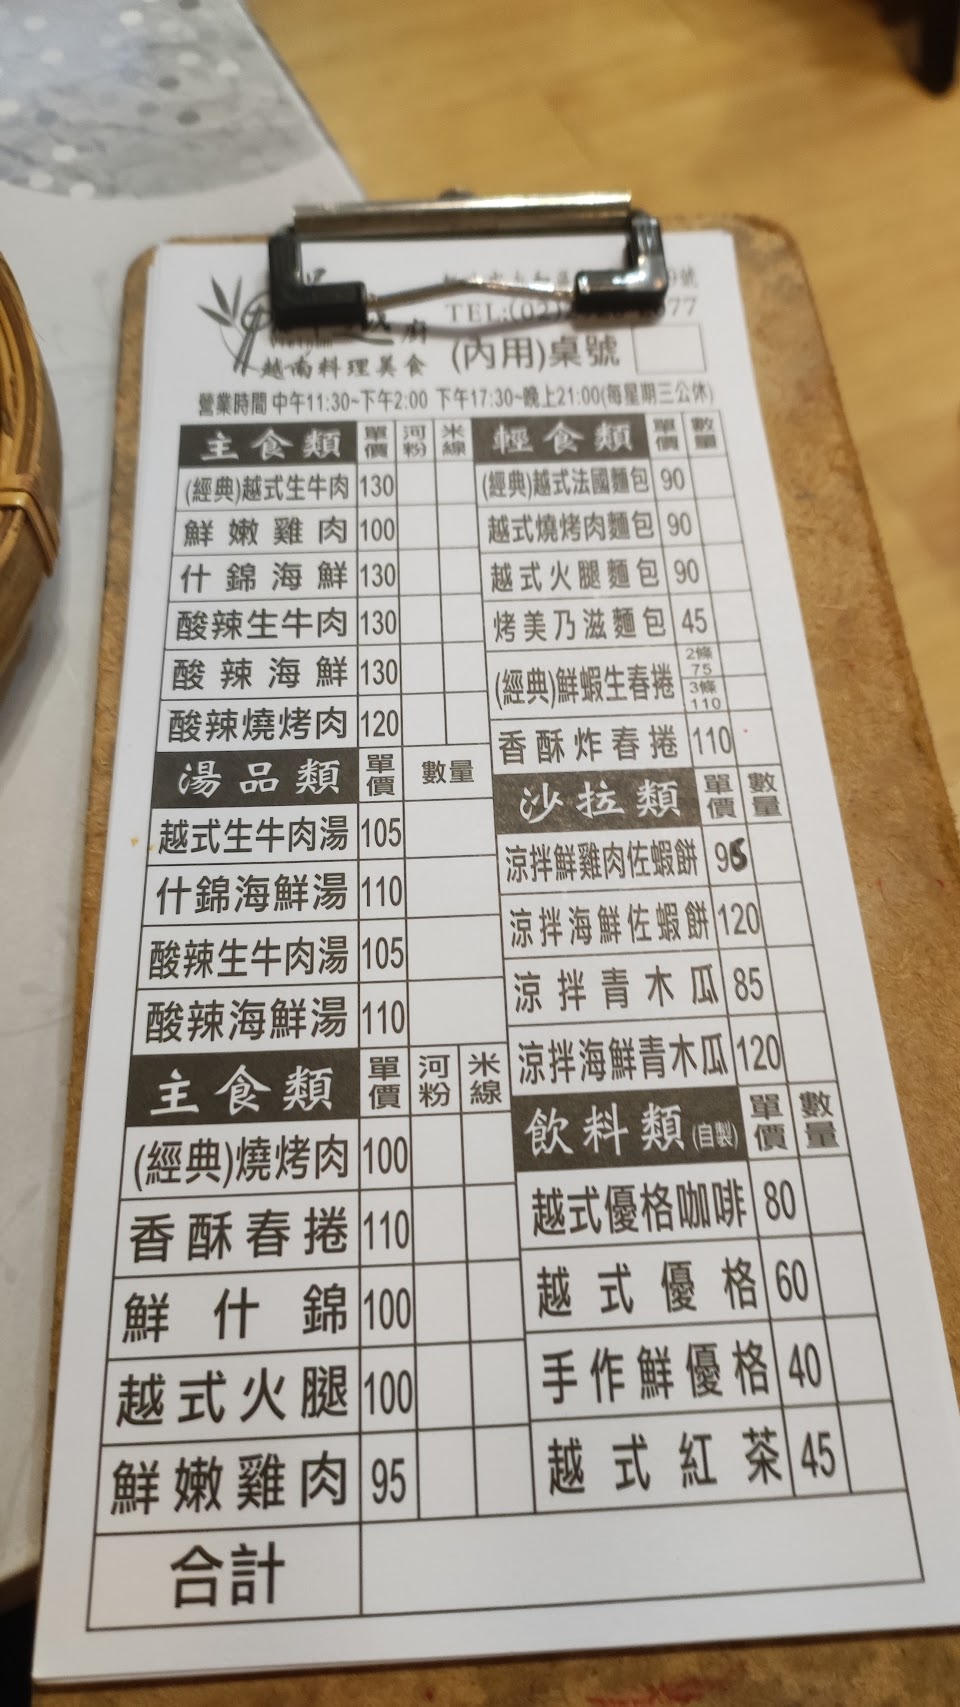 號
TEL:(02)
77
Vietnam
廚
越南料理美食
(內用)桌號
營業時間 中午11:30~下午2:00 下午17:30~晚上21:00(每星期三公休)
主食類 單價 河粉 米線
(經典)越式生牛肉 130
鮮嫩雞肉 100
什錦海鮮 130
酸辣生牛肉 130
酸辣海鮮 130
酸辣燒烤肉 120
湯品類 單價 數量
越式生牛肉湯 105
什錦海鮮湯 110
酸辣生牛肉湯 105
酸辣海鮮湯 110
主食類 單價 河粉 米線
(經典)燒烤肉 100
香酥春捲 110
鮮什錦 100
越式火腿 100
鮮嫩雞肉 95
輕食類 單價 數量
(經典)越式法國麵包 90
越式燒烤肉麵包 90
越式火腿麵包 90
烤美乃滋麵包 45
(經典)鮮蝦生春捲 2條 75 3條 110
香酥炸春捲 110
沙拉類 單價 數量
涼拌鮮雞肉佐蝦餅 95
涼拌海鮮佐蝦餅 120
涼拌青木瓜 85
涼拌海鮮青木瓜 120
飲料類(自製) 單價 數量
越式優格咖啡 80
越式優格 60
手作鮮優格 40
越式紅茶 45
合計